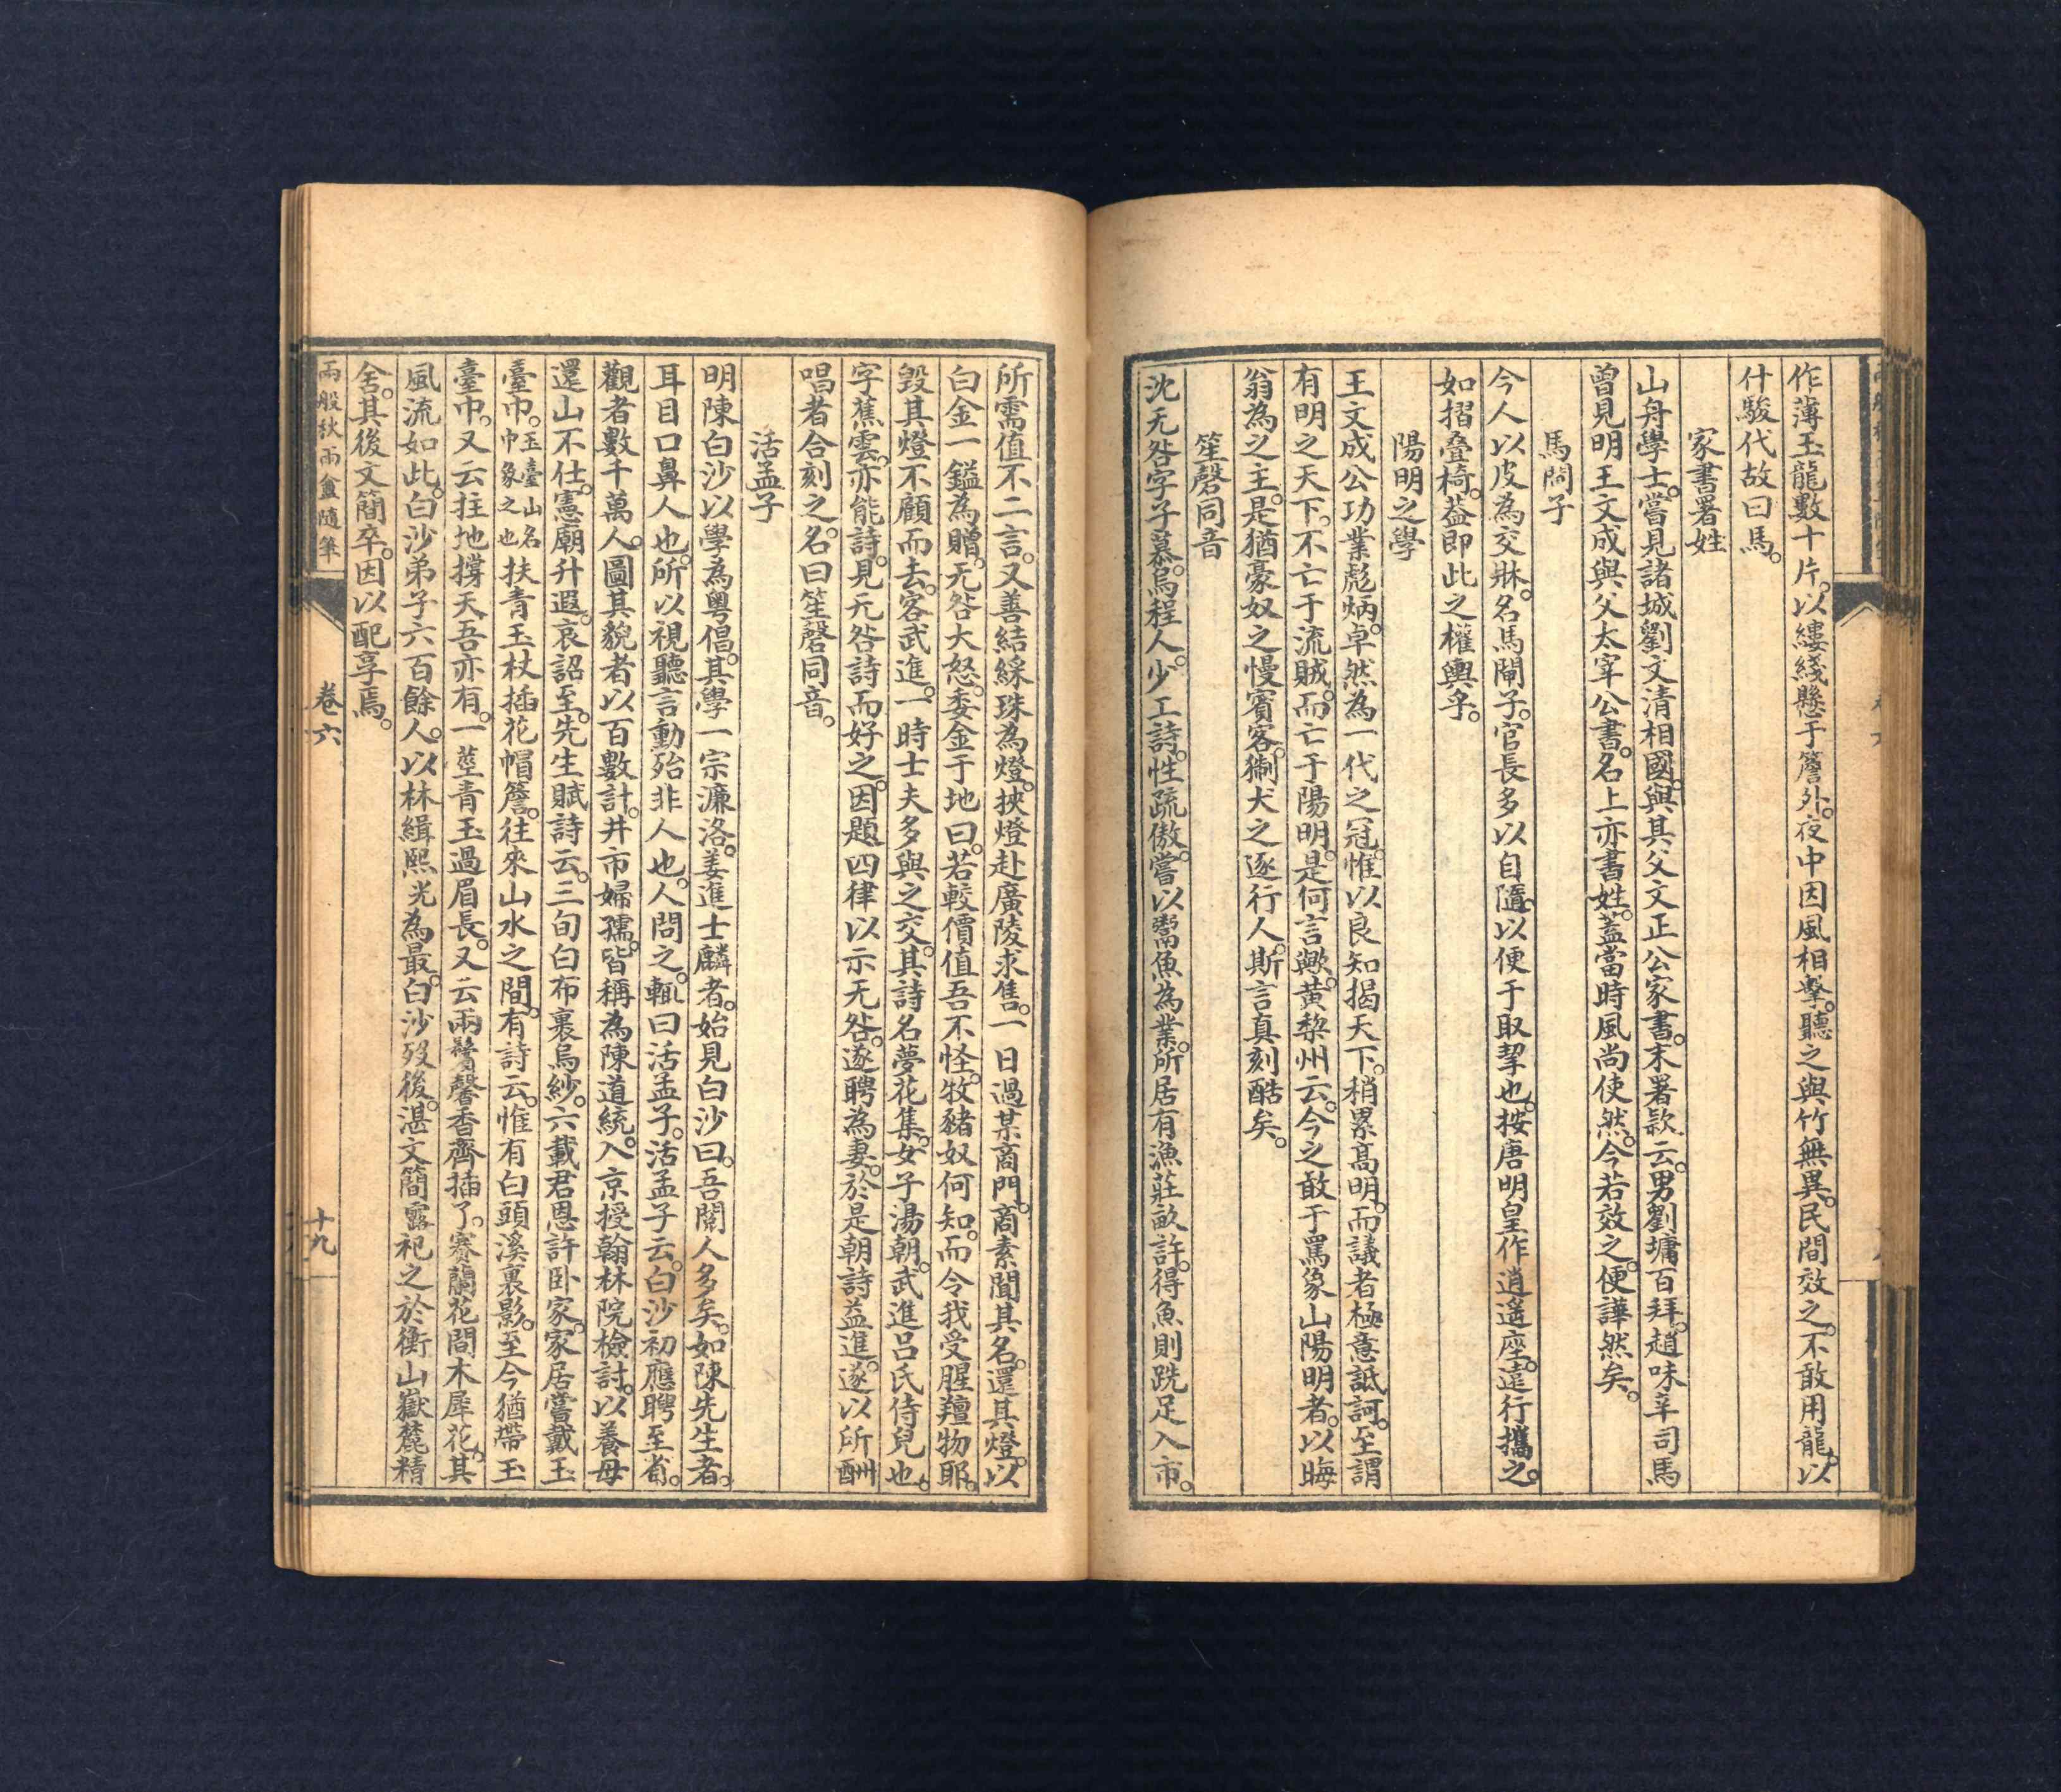 作薄玉龍數十片。以縷綫懸于簷外。夜中因風相擊。聽之與竹無異。民間效之。不敢用龍。以
什駿代故曰馬。
家書署姓
山舟學士。嘗見諸城劉文清相國。與其父文正公家書。末署款云。男劉墉百拜。趙味辛司馬
曾見明王文成與父太宰公書。名上亦書姓。蓋當時風尚使然。今若效之。便譁然矣。
馬閙子
今人以皮為交牀。名馬閘子。官長多以自隨。以便于取挈也。按唐明皇作逍遙座。遠行攜之。
如摺叠椅。葢即此之權輿乎。
陽明之學
王文成公功業彪炳。卓然為一代之冠。惟以良知揭天下。稍累高明。而議者極意詆訶。至謂
有明之天下。不亡于流賊。而亡于陽明。是何言歟。黃棃州云。今之敢于罵象山陽明者。以晦
翁為之主。是猶豪奴之慢賓客。猘犬之逐行人。斯言真刻酷矣。
笙磬同音
沈无咎字子慕。烏程人。少工詩。性疏傲。嘗以鬻魚為業。所居有漁莊畝許。得魚則跣足入市。
所需值不二言。又善結綵珠為燈。挾燈赴廣陵求售。一日過某商門。商素聞其名。還其燈。以
白金一鎰為贈。无咎大怒。委金于地曰。若較價值吾不怪。牧豬奴何知。而令我受腥羶物耶。
毀其燈不顧而去。客武進。一時士夫多與之交。其詩名夢花集。女子湯朝。武進呂氏侍兒也。
字蕉雲。亦能詩。見无咎詩而好之。因題四律以示无咎。遂聘為妻。於是朝詩益進。遂以所酬
唱者合刻之。名曰笙磬同音。
活孟子
明陳白沙以學為粵倡。其學一宗濂洛。姜進士麟者。始見白沙曰。吾閱人多矣。如陳先生者。
耳目口鼻人也。所以視聽言動殆非人也。人問之。輒曰活孟子。活孟子云。白沙初應聘至省。
觀者數千萬人。圖其貌者以百數計。井市婦孺。皆稱為陳道統。入京授翰林院檢討。以養母
還山不仕。憲廟升遐。哀詔至。先生賦詩云。三旬白布裹烏紗。六載君恩許卧家。家居嘗戴玉
臺巾。玉臺山名巾象之也扶青玉杖插花帽簷。往來山水之間。有詩云。惟有白頭溪裏影。至今猶帶玉
臺巾。又云拄地撐天吾亦有。一莖青玉過眉長。又云兩鬢馨香齊插了。賽蘭花間木犀花。其
風流如此。白沙弟子六百餘人。以林緝熙光為最。白沙歿後。湛文簡露祀之於衡山嶽麓精
舍。其後文簡卒。因以配享焉。
兩般秋雨盦隨筆
卷六
十九